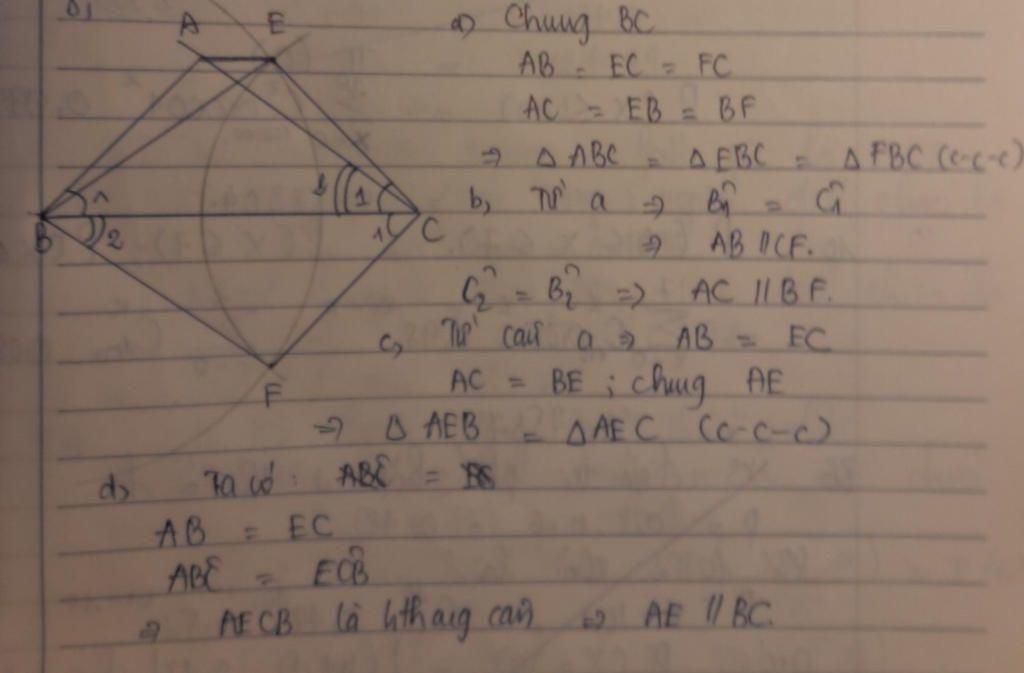 A E
B C
F
1 2 2 1 1
a) Chung BC
AB = EC = FC
AC = EB = BF
=> Δ ABC = Δ EBC = Δ FBC (c-c-c)
b, Từ a => B̂1 = Ĉ1
=> AB // CF.
Ĉ2 = B̂2 => AC // BF.
c, Từ câu a => AB = EC
AC = BE ; chung AE
=> Δ AEB = Δ AEC (c-c-c)
d, Ta có : ABC =
AB = EC
ABC = ECB
=> AECB là hthang cân => AE // BC.